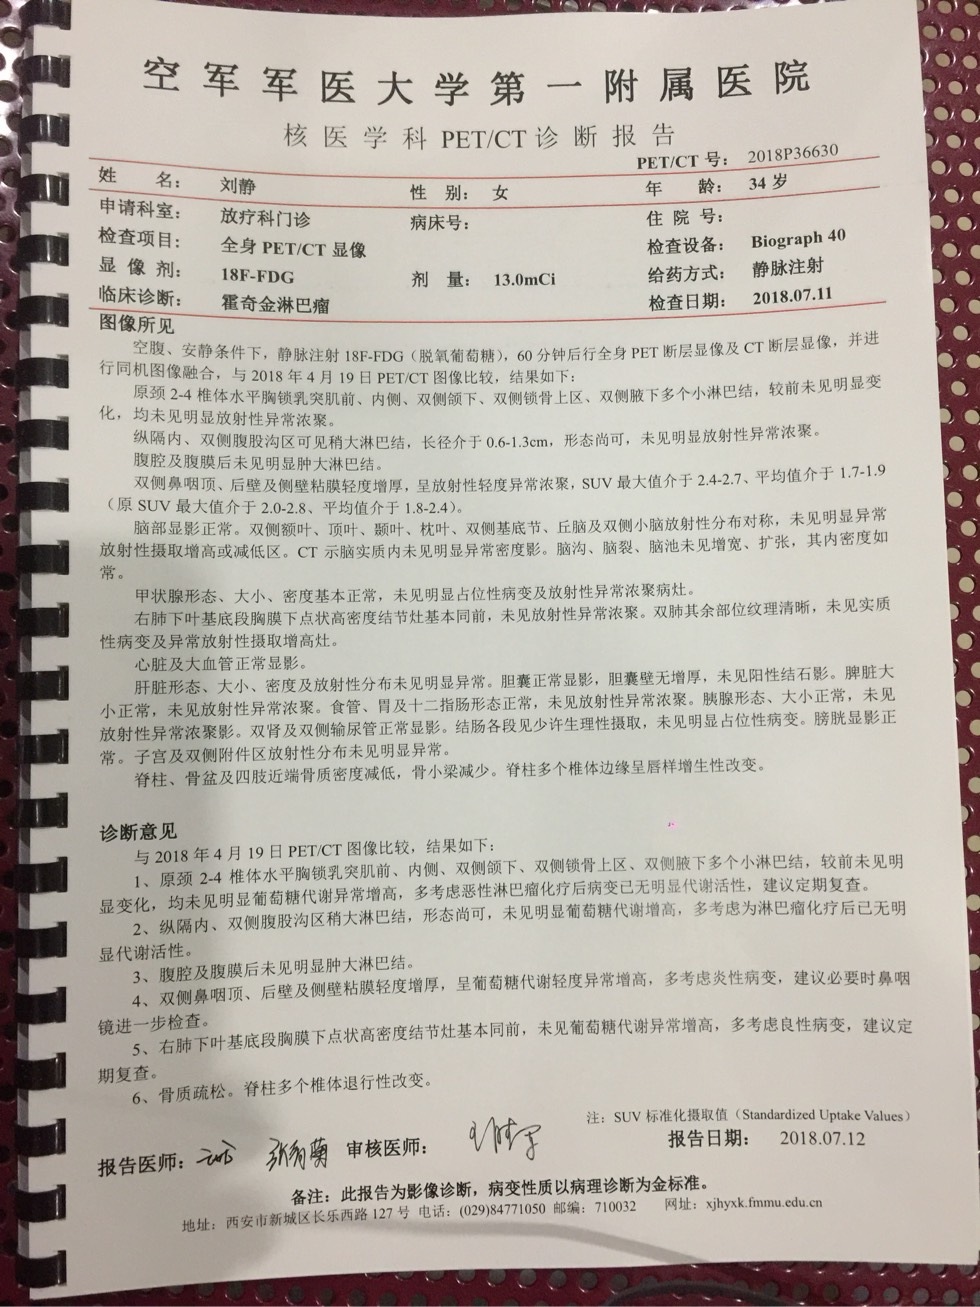 空军军医大学第一附属医院
核医学科 PET/CT 诊断报告
PET/CT 号: 2018P36630
姓 名: 刘静 性 别: 女 年 龄: 34 岁
申请科室: 放疗科门诊 病床号: 住 院 号:
检查项目: 全身 PET/CT 显像 检查设备: Biograph 40
显 像 剂: 18F-FDG 剂 量: 13.0mCi 给药方式: 静脉注射
临床诊断: 霍奇金淋巴瘤 检查日期: 2018.07.11
图像所见
空腹、安静条件下，静脉注射 18F-FDG（脱氧葡萄糖），60 分钟后行全身 PET 断层显像及 CT 断层显像，并进
行同机图像融合，与 2018 年 4 月 19 日 PET/CT 图像比较，结果如下：
原颈 2-4 椎体水平胸锁乳突肌前、内侧、双侧颌下、双侧锁骨上区、双侧腋下多个小淋巴结，较前未见明显变
化，均未见明显放射性异常浓聚。
纵隔内、双侧腹股沟区可见稍大淋巴结，长径介于 0.6-1.3cm，形态尚可，未见明显放射性异常浓聚。
腹腔及腹膜后未见明显肿大淋巴结。
双侧鼻咽顶、后壁及侧壁粘膜轻度增厚，呈放射性轻度异常浓聚，SUV 最大值介于 2.4-2.7、平均值介于 1.7-1.9
（原 SUV 最大值介于 2.0-2.8、平均值介于 1.8-2.4）。
脑部显影正常。双侧额叶、顶叶、颞叶、枕叶、双侧基底节、丘脑及双侧小脑放射性分布对称，未见明显异常
放射性摄取增高或减低区。CT 示脑实质内未见明显异常密度影。脑沟、脑裂、脑池未见增宽、扩张，其内密度如
常。
甲状腺形态、大小、密度基本正常，未见明显占位性病变及放射性异常浓聚病灶。
右肺下叶基底段胸膜下点状高密度结节灶基本同前，未见放射性异常浓聚。双肺其余部位纹理清晰，未见实质
性病变及异常放射性摄取增高灶。
心脏及大血管正常显影。
肝脏形态、大小、密度及放射性分布未见明显异常。胆囊正常显影，胆囊壁无增厚，未见阳性结石影。脾脏大
小正常，未见放射性异常浓聚。食管、胃及十二指肠形态正常，未见放射性异常浓聚。胰腺形态、大小正常，未见
放射性异常浓聚影。双肾及双侧输尿管正常显影。结肠各段见少许生理性摄取，未见明显占位性病变。膀胱显影正
常。子宫及双侧附件区放射性分布未见明显异常。
脊柱、骨盆及四肢近端骨质密度减低，骨小梁减少。脊柱多个椎体边缘呈唇样增生性改变。
诊断意见
与 2018 年 4 月 19 日 PET/CT 图像比较，结果如下：
1、原颈 2-4 椎体水平胸锁乳突肌前、内侧、双侧颌下、双侧锁骨上区、双侧腋下多个小淋巴结，较前未见明
显变化，均未见明显葡萄糖代谢异常增高，多考虑恶性淋巴瘤化疗后病变已无明显代谢活性，建议定期复查。
2、纵隔内、双侧腹股沟区稍大淋巴结，形态尚可，未见明显葡萄糖代谢增高，多考虑为淋巴瘤化疗后已无明
显代谢活性。
3、腹腔及腹膜后未见明显肿大淋巴结。
4、双侧鼻咽顶、后壁及侧壁粘膜轻度增厚，呈葡萄糖代谢轻度异常增高，多考虑炎性病变，建议必要时鼻咽
镜进一步检查。
5、右肺下叶基底段胸膜下点状高密度结节灶基本同前，未见葡萄糖代谢异常增高，多考虑良性病变，建议定
期复查。
6、骨质疏松。脊柱多个椎体退行性改变。
注：SUV 标准化摄取值（Standardized Uptake Values）
报告医师: 审核医师: 报告日期: 2018.07.12
备注：此报告为影像诊断，病变性质以病理诊断为金标准。
地址：西安市新城区长乐西路 127 号 电话：(029)84771050 邮编：710032 网址：xjhyxk.fmmu.edu.cn